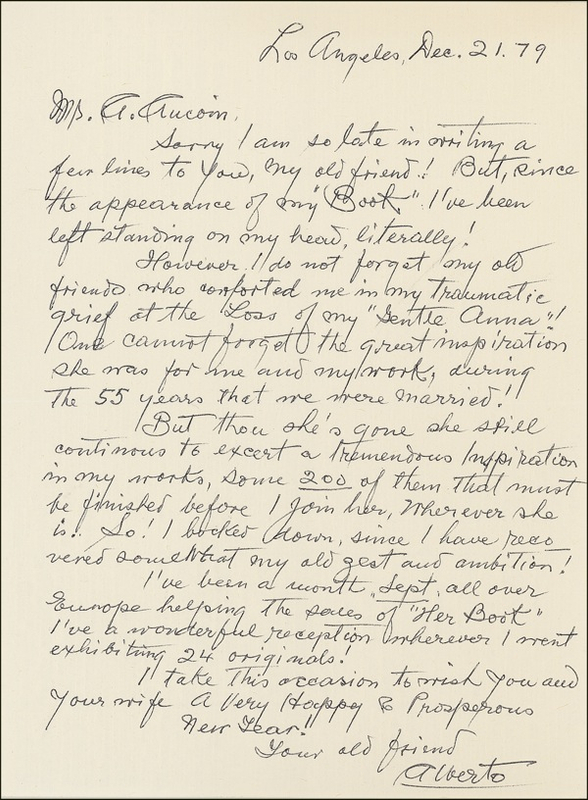 Los Angeles, Dec. 21. 79
Mr. A. Aucoin,
Sorry I am so late in writing a
few lines to You, My old friend! But, since
the appearance of my "Book" I've been
left standing on my head, literally!
However I do not forget my old
friends who conforted me in my traumatic
grief at the Loss of my "Gentle Anna"!
One cannot forget the great inspiration
she was for me and my work, during
the 55 years that we were married!
But thou she's gone she still
continous to excert a tremendous Inspiration
in my works, some 200 of them that must
be finished before I join her, Wherever she
is. So! I bocked down, since I have reco
vered somewhat my old zest and ambition!
I've been a month, Sept, all over
Europe helping the sales of "Her Book"
I've a wonderful reception wherever I went
exhibiting 24 originals!
I take this occasion to wish You and
Your wife A Very Happy & Prosperous
New Year!
Your old friend
Alberto